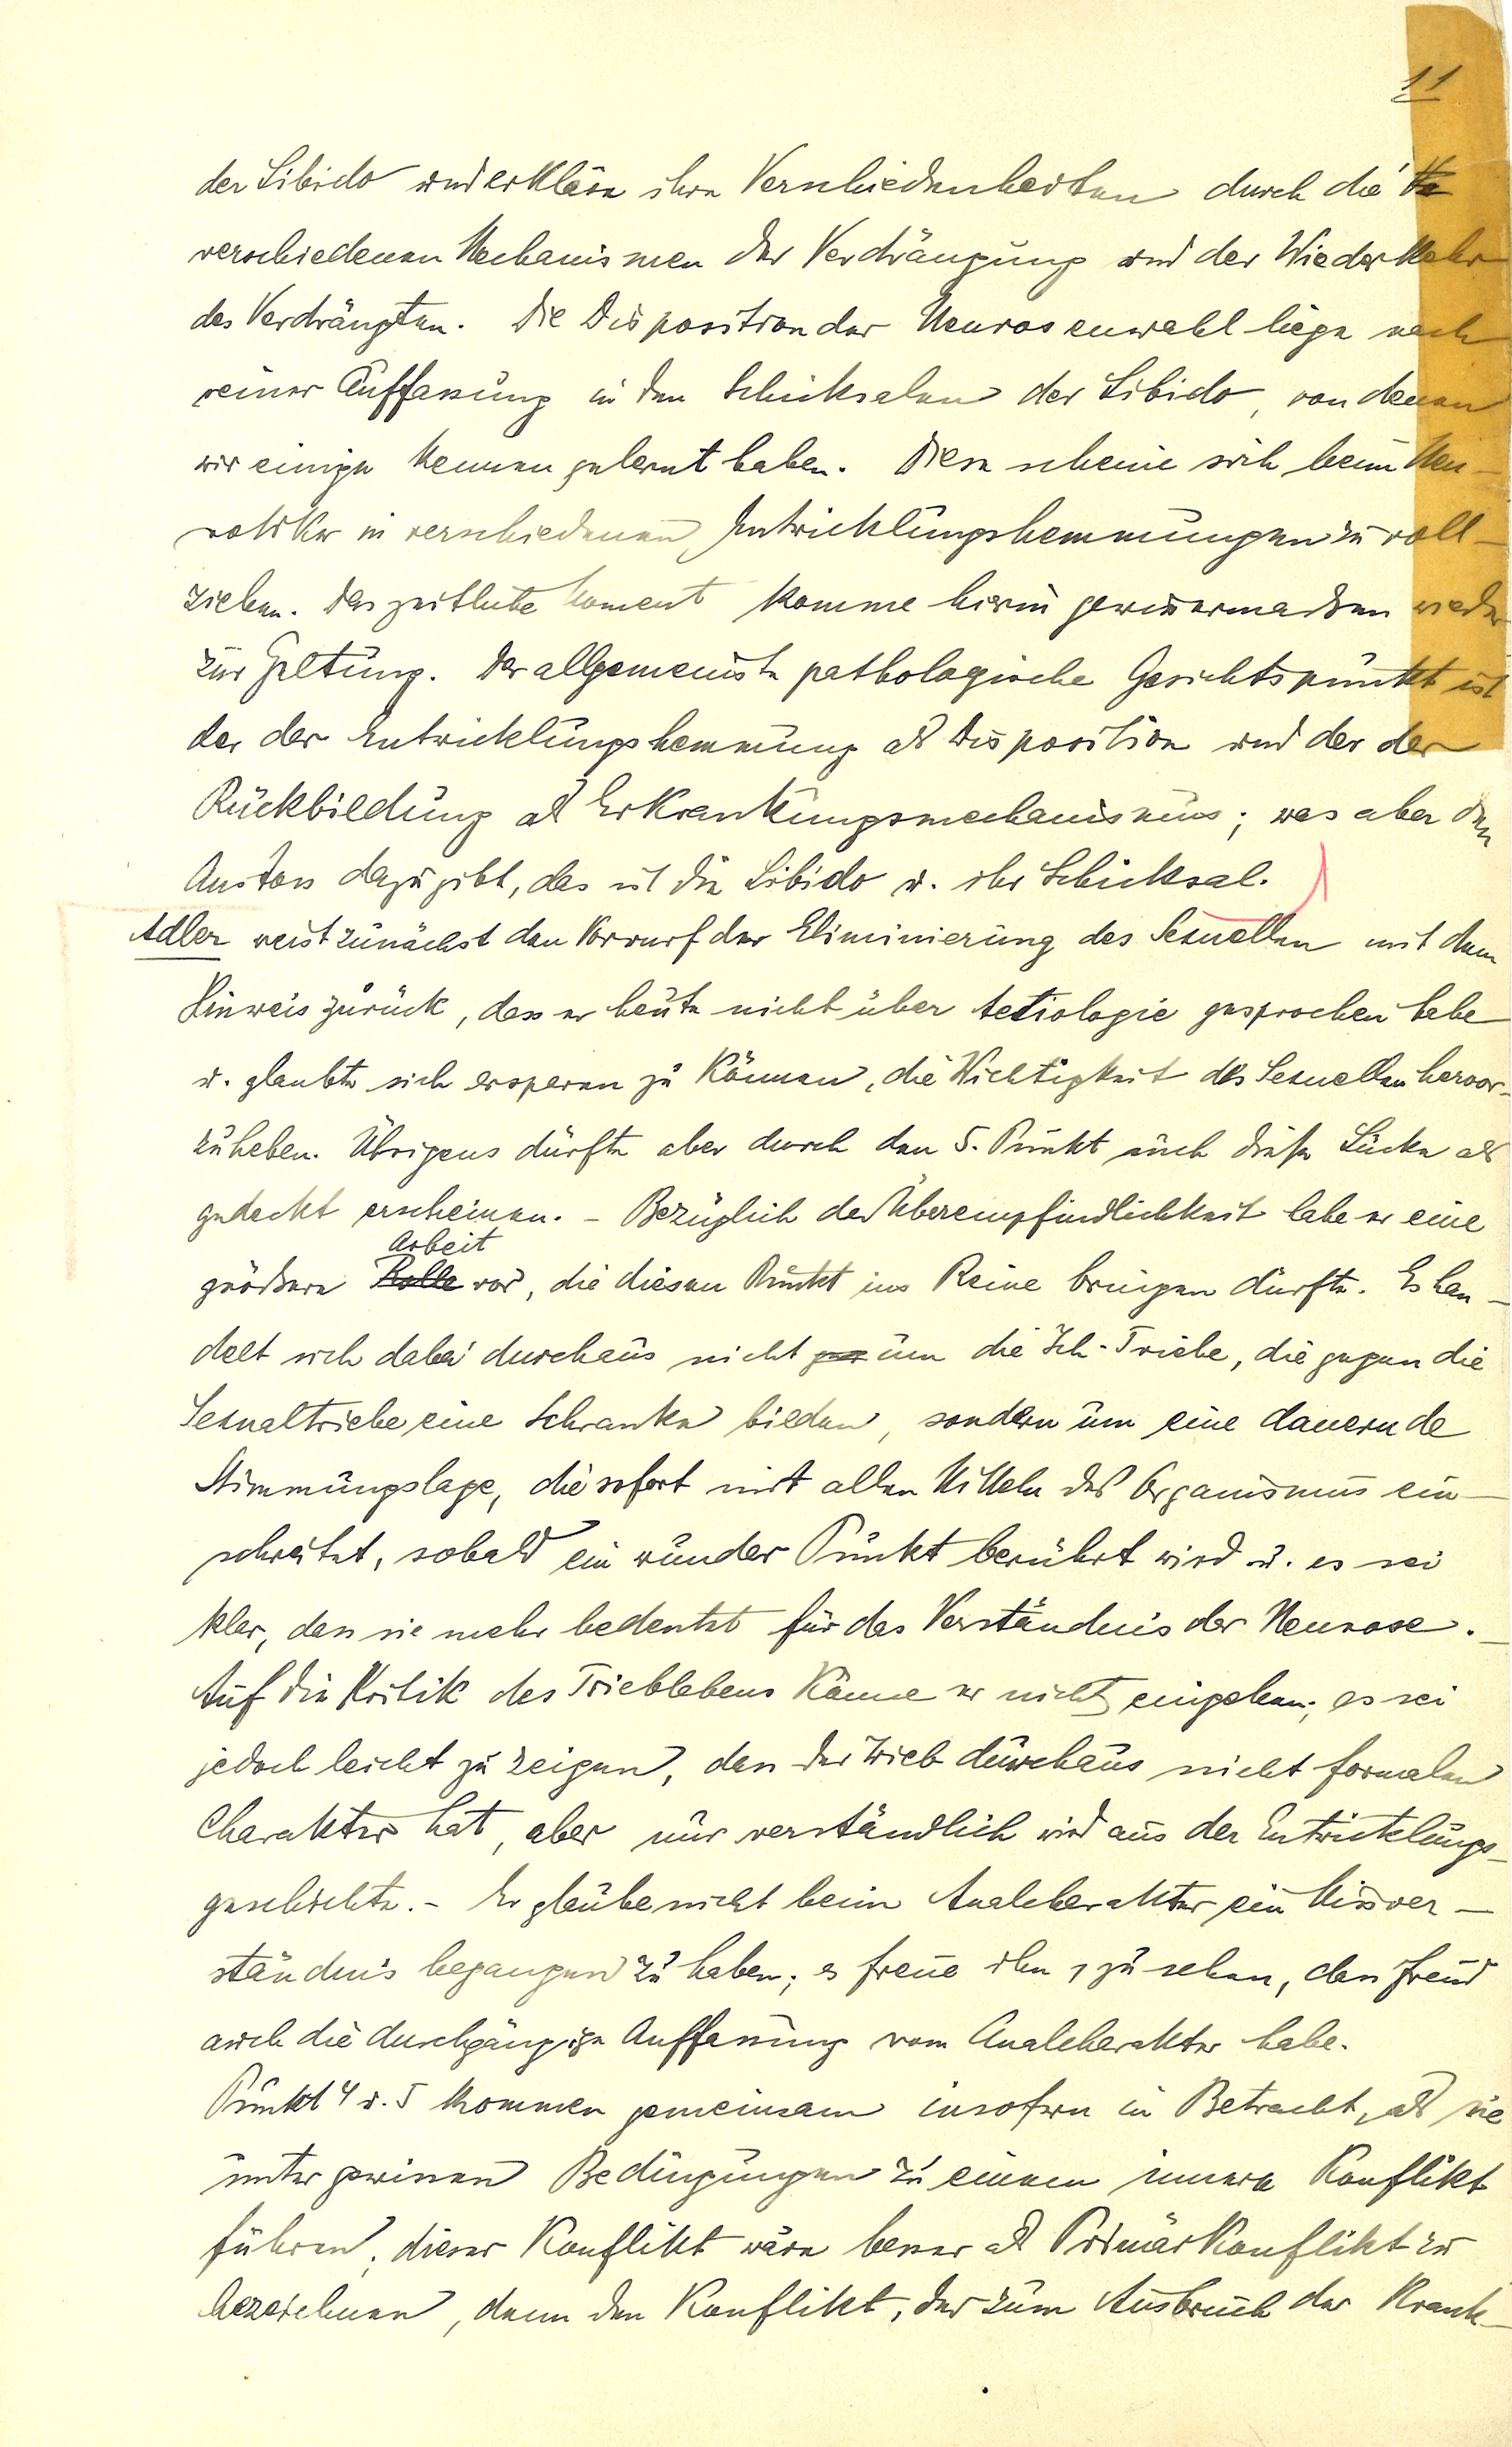 11
der Libido und erkläre ihre Verschiedenheiten durch die Ve
verschiedenen Mechanismen der Verdrängung und der Wiederkehr
des Verdrängten. Die Disposition der Neurosenwahl liege nach
seiner Auffassung in den Schicksalen der Libido, von denen
wir einige kennen gelernt haben. Diese scheine sich beim Neu-
rotiker in verschiedenen Entwicklungshemmungen zu voll-
ziehen. Das zeitliche Moment komme hierin gewissermaßen wieder
zur Geltung. Der allgemeinste pathologische Gesichtspunkt ist
der der Entwicklungshemmung als Disposition und der der
Rückbildung als Erkrankungsmechanismus; was aber den
Anstoss dazu gibt, das ist die Libido u. ihr Schicksal.
Adler weist zunächst den Vorwurf der Eliminierung des Sexuellen mit dem
Hinweis zurück, dass er heute nicht über Aetiologie gesprochen habe
u. glaubte sich ersparen zu können, die Wichtigkeit des Sexuellen hervor-
zuheben. Übrigens dürfte aber durch den 5. Punkt auch diese Lücke als
gedeckt erscheinen. - Bezüglich der Überempfindlichkeit habe er eine
Arbeit
größere Rolle vor, die diesen Punkt ins Reine bringen dürfte. Es han-
delt sich dabei durchaus nicht um die Ich-Triebe, die gegen die
Sexualtriebe eine Schranke bilden, sondern um eine dauernde
Stimmungslage, die sofort mit allen Mitteln des Organismus ein-
schreitet, sobald ein wunder Punkt berührt wird u. es sei
klar, dass sie mehr bedeutet für das Verständnis der Neurose. -
Auf die Kritik des Trieblebens könne er nicht eingehen; es sei
jedoch leicht zu zeigen, dass der Trieb durchaus nicht formalen
Charakter hat, aber nur verständlich wird aus der Entwicklungs-
geschichte. - Er glaube nicht beim Analcharakter ein Missver-
ständnis begangen zu haben; es freue ihn, zu sehen, dass Freud
auch die durchgängige Auffassung vom Analcharakter habe.
Punkt 4 u. 5 kommen gemeinsam insofern in Betracht, als sie
unter gewissen Bedingungen zu einem innern Konflikt
führen; dieser Konflikt wäre besser als Primärkonflikt zu
bezeichnen, denn den Konflikt, der zum Ausbruch der Krank-